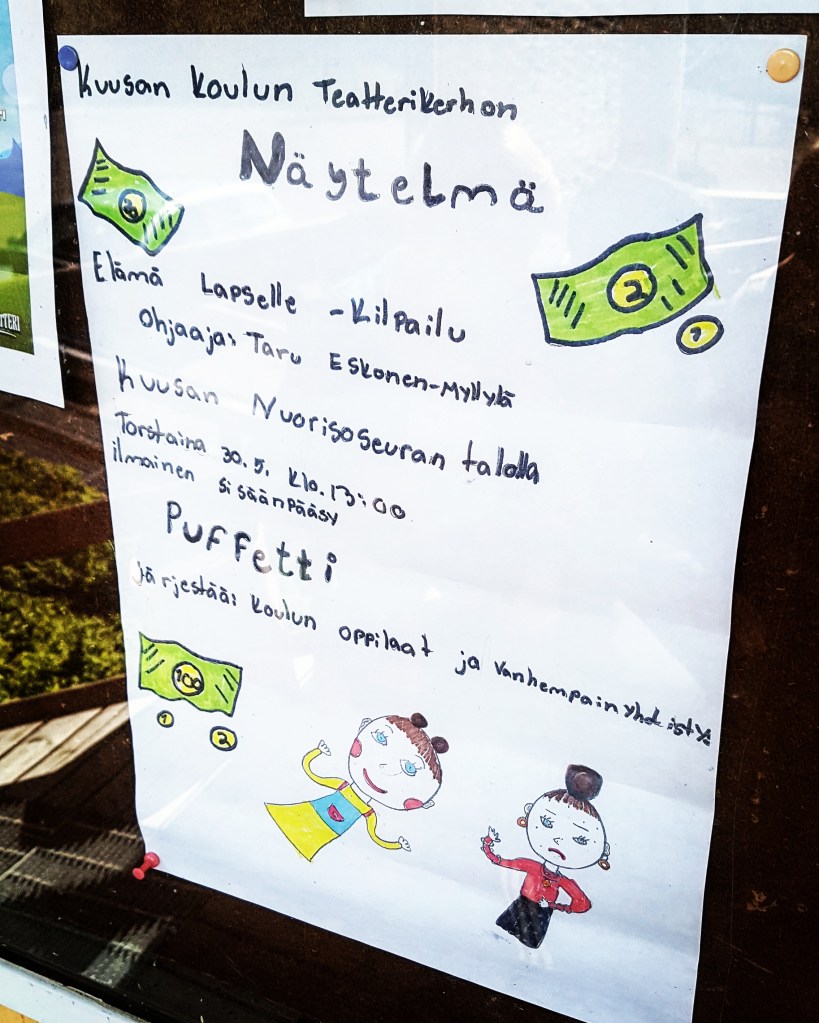 Kuusan Koulun Teatterikerhon
Näytelmä
Elämä Lapselle -Kilpailu
Ohjaaja: Taru Eskonen-Myllylä
Kuusan Nuorisoseuran talolla
Torstaina 30.5. klo.13:00
ilmainen sisäänpääsy
Puffetti
järjestää: koulun oppilaat ja vanhempainyhdistys
2
1
100
1
2